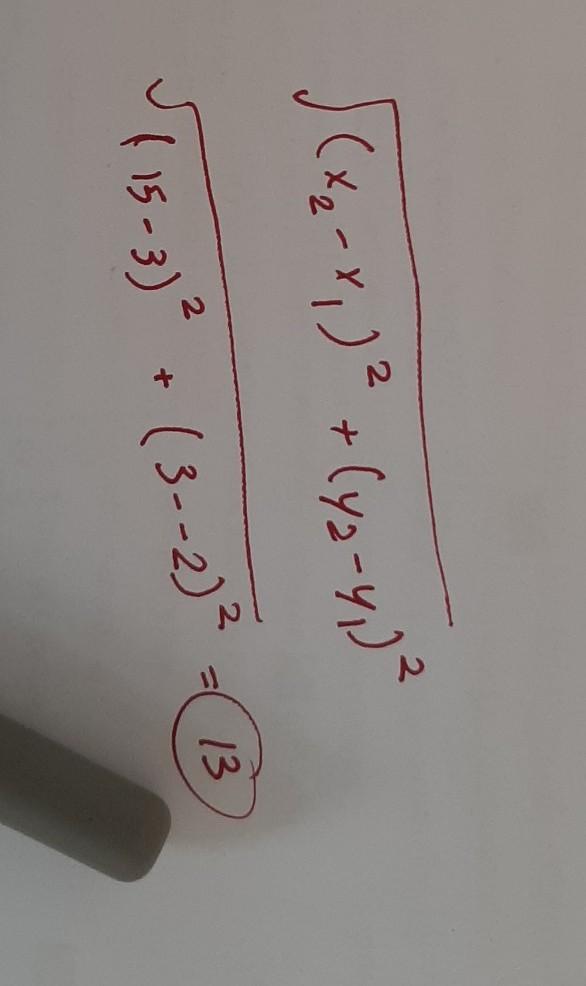 √(x₂ - x₁)² + (y₂ - y₁)²
√(15 - 3)² + (3 - -2)² = 13